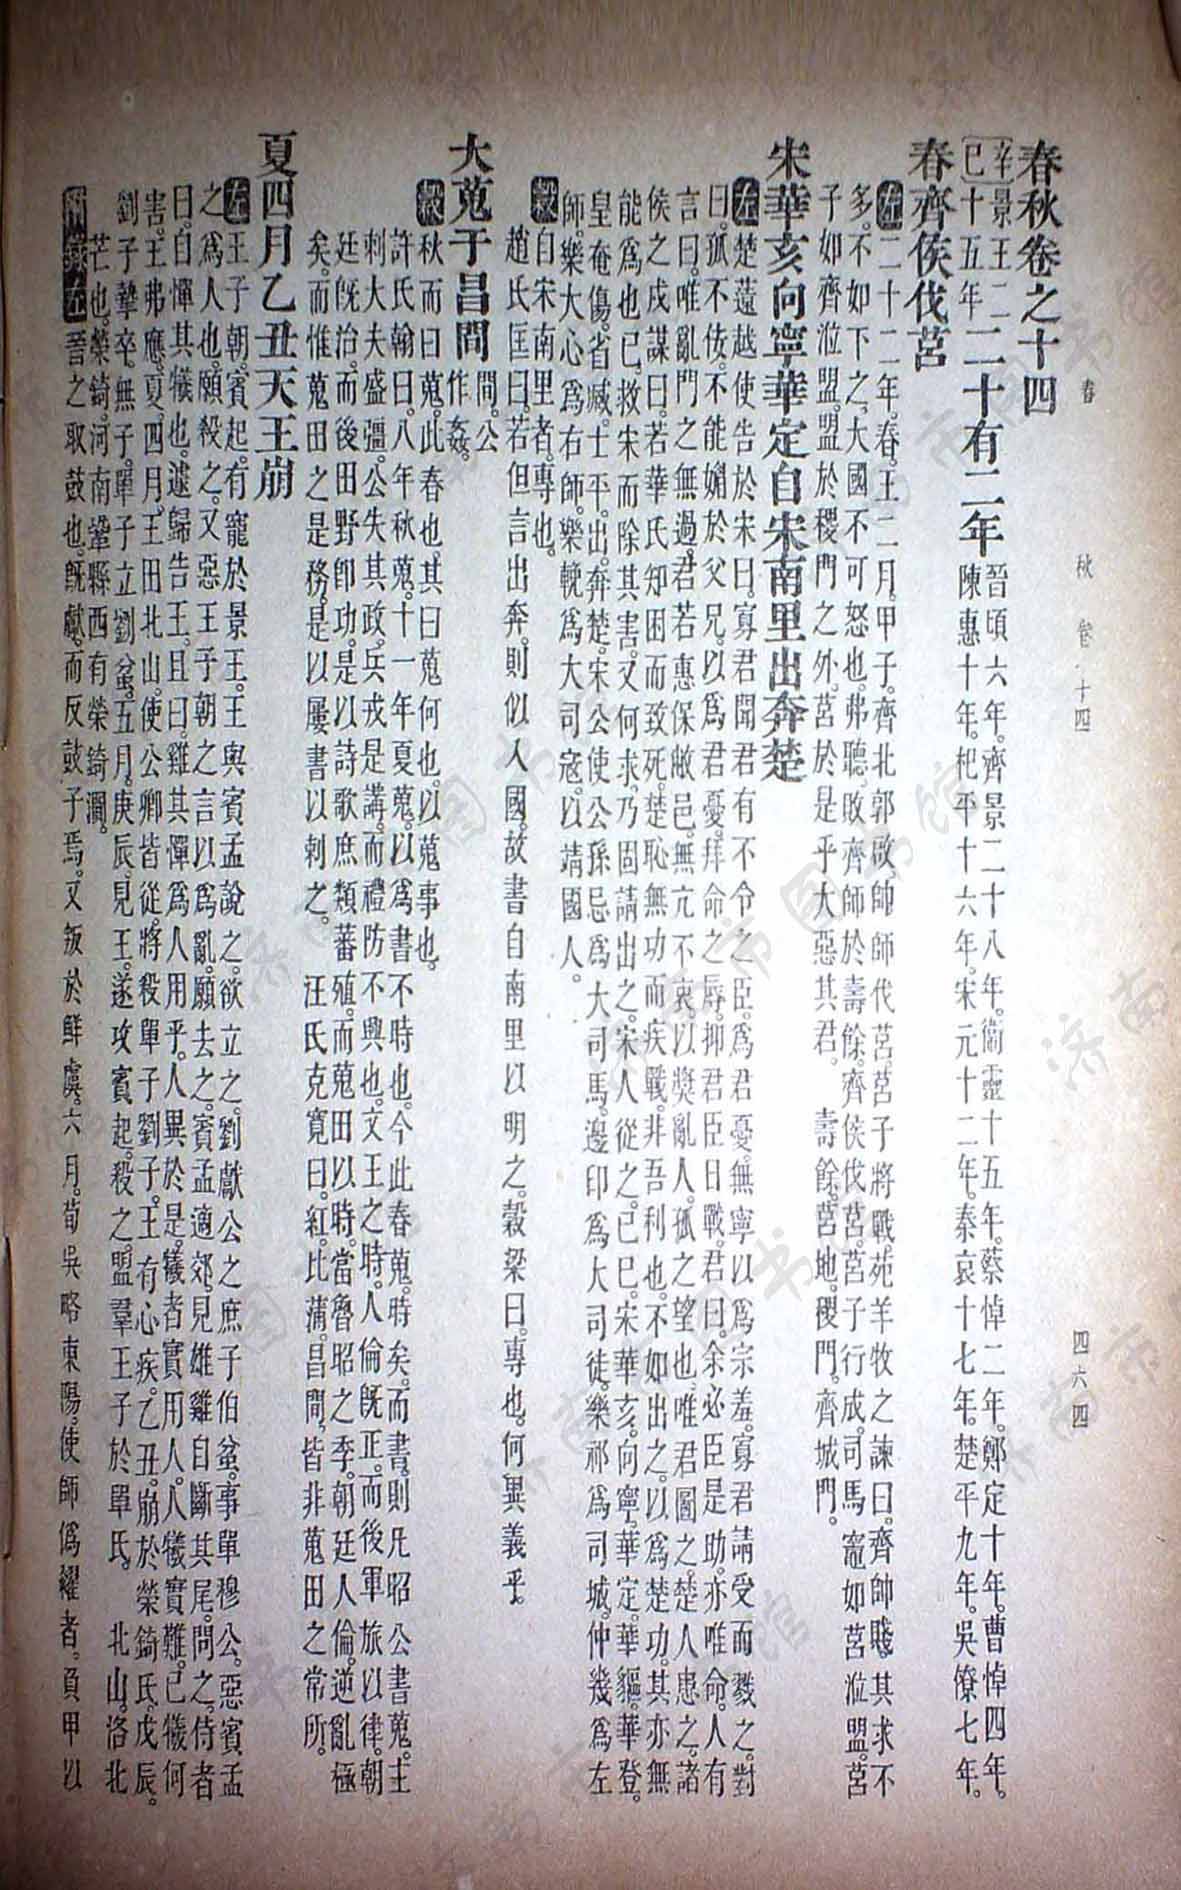 春秋卷十四
四六四
春秋卷之十四
辛巳
景王二十五年
二十有二年
晉頃六年。齊景二十八年。衞靈十五年。蔡悼二年。鄭定十年。曹悼四年。
陳惠十年。杞平十六年。宋元十二年。秦哀十七年。楚平九年。吳僚七年。
春齊侯伐莒
左二十二年。春。王二月。甲子。齊北郭啟。帥師伐莒。莒子將戰。苑羊牧之諫曰。齊帥賤。其求不
多。不如下之。大國不可怒也。弗聽。敗齊師於壽餘。齊侯伐莒。莒子行成。司馬竈如莒涖盟。莒
子如齊涖盟。盟於稷門之外。莒於是乎大惡其君。 壽餘。莒地。稷門。齊城門。
宋華亥向寧華定自宋南里出奔楚
左楚薳越使告於宋曰。寡君聞君有不令之臣。爲君憂。無寧以爲宗羞。寡君請受而戮之。對
曰。孤不佞。不能媚於父兄。以爲君憂。拜命之辱。抑君臣日戰。君曰。余必臣是助。亦唯命。人有
言曰。唯亂門之無過。君若惠保敝邑。無亢不衷。以獎亂人。孤之望也。唯君圖之。楚人患之。諸
侯之戍謀曰。若華氏知困而致死。楚恥無功而疾戰。非吾利也。不如出之。以爲楚功。其亦無
能爲也已。救宋而除其害。又何求。乃固請出之。宋人從之。己巳。宋華亥。向寧。華定。華貙。華登。
皇奄傷。省臧。士平。出奔楚。宋公使公孫忌爲大司馬。邊卬爲大司徒。樂祁爲司城。仲幾爲左
師。樂大心爲右師。樂輓爲大司寇。以靖國人。
穀自宋南里者。專也。
趙氏匡曰。若但言出奔。則似入國。故書自南里以明之。穀梁曰。專也。何異義乎。
大蒐于昌間
間。公
作姦。
穀秋而曰蒐。此春也。其曰蒐何也。以蒐事也。
許氏翰曰。八年秋蒐。十一年夏蒐。以爲書不時也。今此春蒐。時矣。而書。則凡昭公書蒐。主
刺大夫盛彊。公失其政。兵戎是講。而禮防不興也。文王之時。人倫旣正。而後軍旅以律。朝
廷旣治。而後田野卽功。是以詩歌庶類蕃殖。而蒐田以時。當魯昭之季。朝廷人倫。逆亂極
矣。而惟蒐田之是務。是以屢書以刺之。 汪氏克寬曰。紅。比蒲。昌間。皆非蒐田之常所。
夏四月乙丑天王崩
左王子朝。賓起。有寵於景王。王與賓孟說之。欲立之。劉獻公之庶子伯蚠。事單穆公。惡賓孟
之爲人也。願殺之。又惡王子朝之言。以爲亂。願去之。賓孟適郊。見雄雞自斷其尾。問之。侍者
曰。自憚其犧也。遽歸告王。且曰。雞其憚爲人用乎。人異於是。犧者實用人。人犧實難。己犧何
害。王弗應。夏。四月。王田北山。使公卿皆從。將殺單子劉子。王有心疾。乙丑。崩於榮錡氏。戊辰。
劉子摯卒。無子。單子立劉蚠。五月。庚辰。見王。遂攻賓起。殺之。盟羣王子於單氏。 北山。洛北
芒也。榮錡。河南鞏縣西有榮錡澗。
附錄左晉之取鼓也。旣獻。而反鼓子焉。又叛於鮮虞。六月。荀吳略東陽。使師僞糴者。負甲以